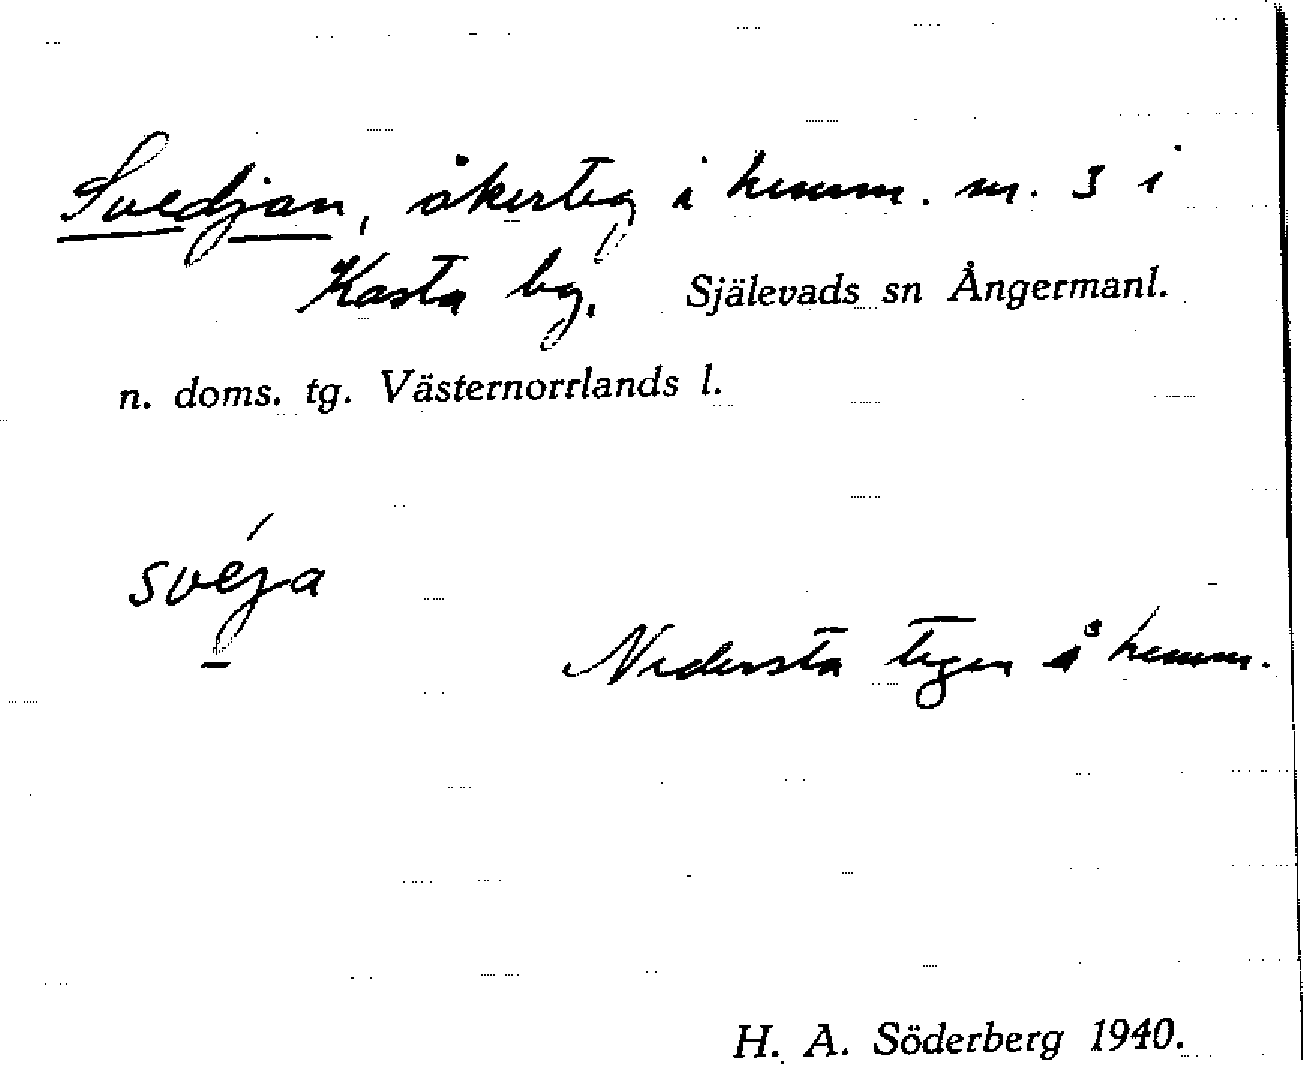 Svedjan, åkerteg i hemm. nr. 3 i
Kasta by. Själevads sn Ångermanl.
n. doms. tg. Västernorrlands l.
svéja
Nedersta tegen å hemm.
H. A. Söderberg 1940.